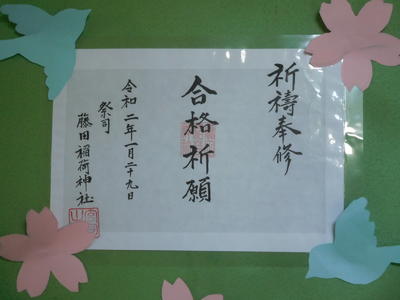 祈禱奉修
合格祈願
令和二年一月二十九日
祭司
藤田稲荷神社